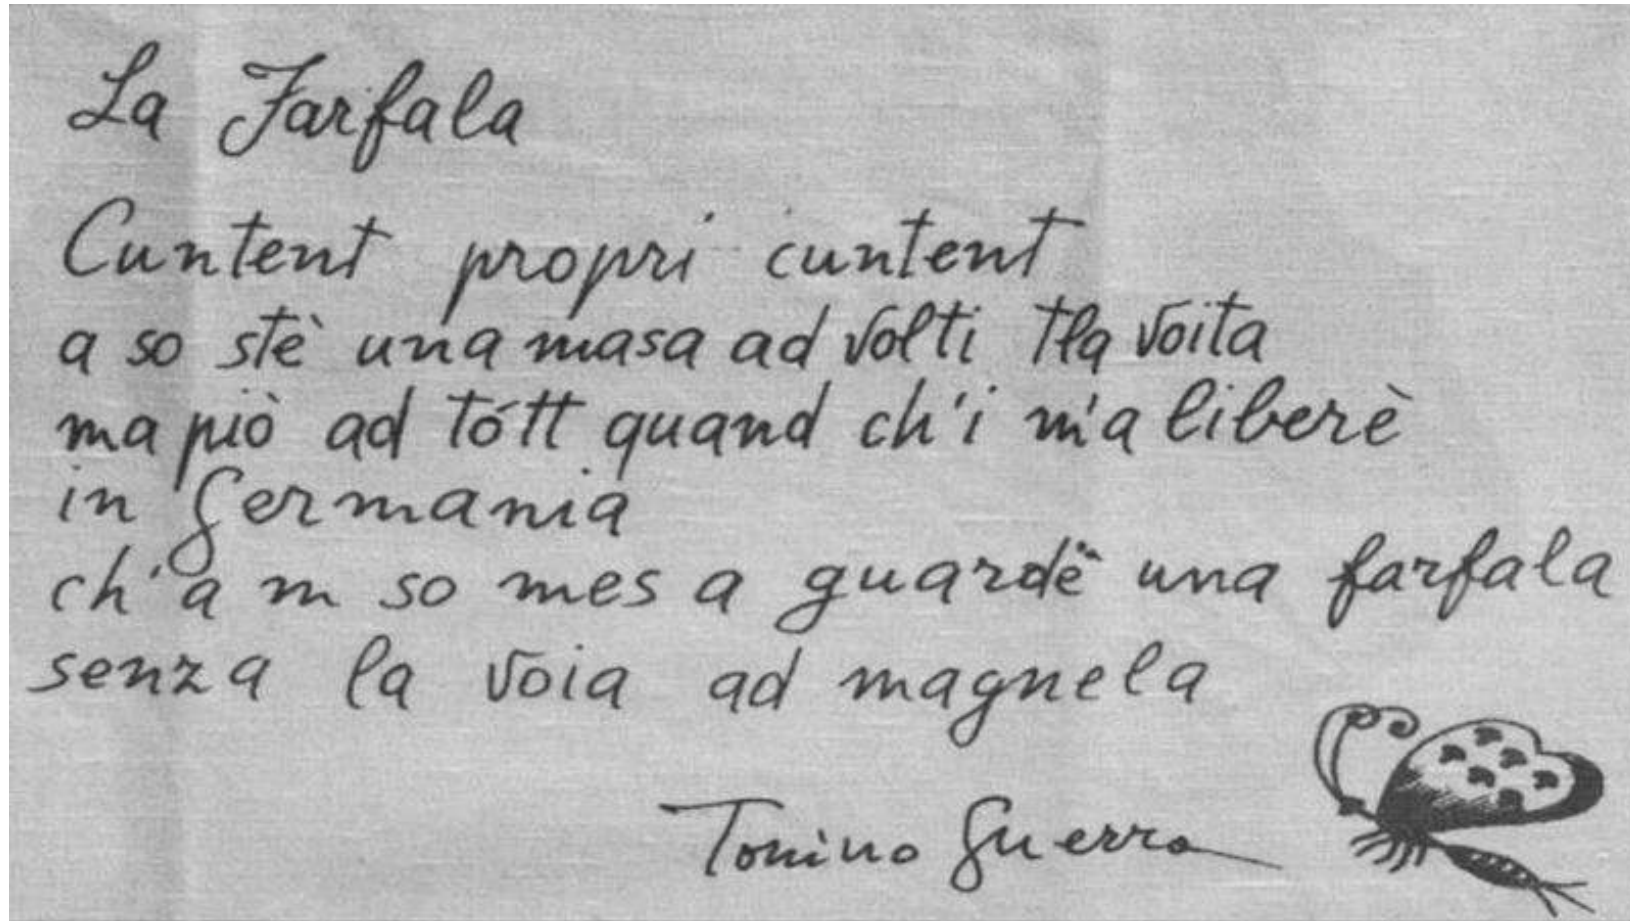 La Farfala
Cuntent propri cuntent
a so stè una masa ad volti tla voita
ma piò ad tótt quand ch'i m'a liberè
in Germania
ch'a m so mes a guardë una farfala
senza la voia ad magnela
Tonino Guerra